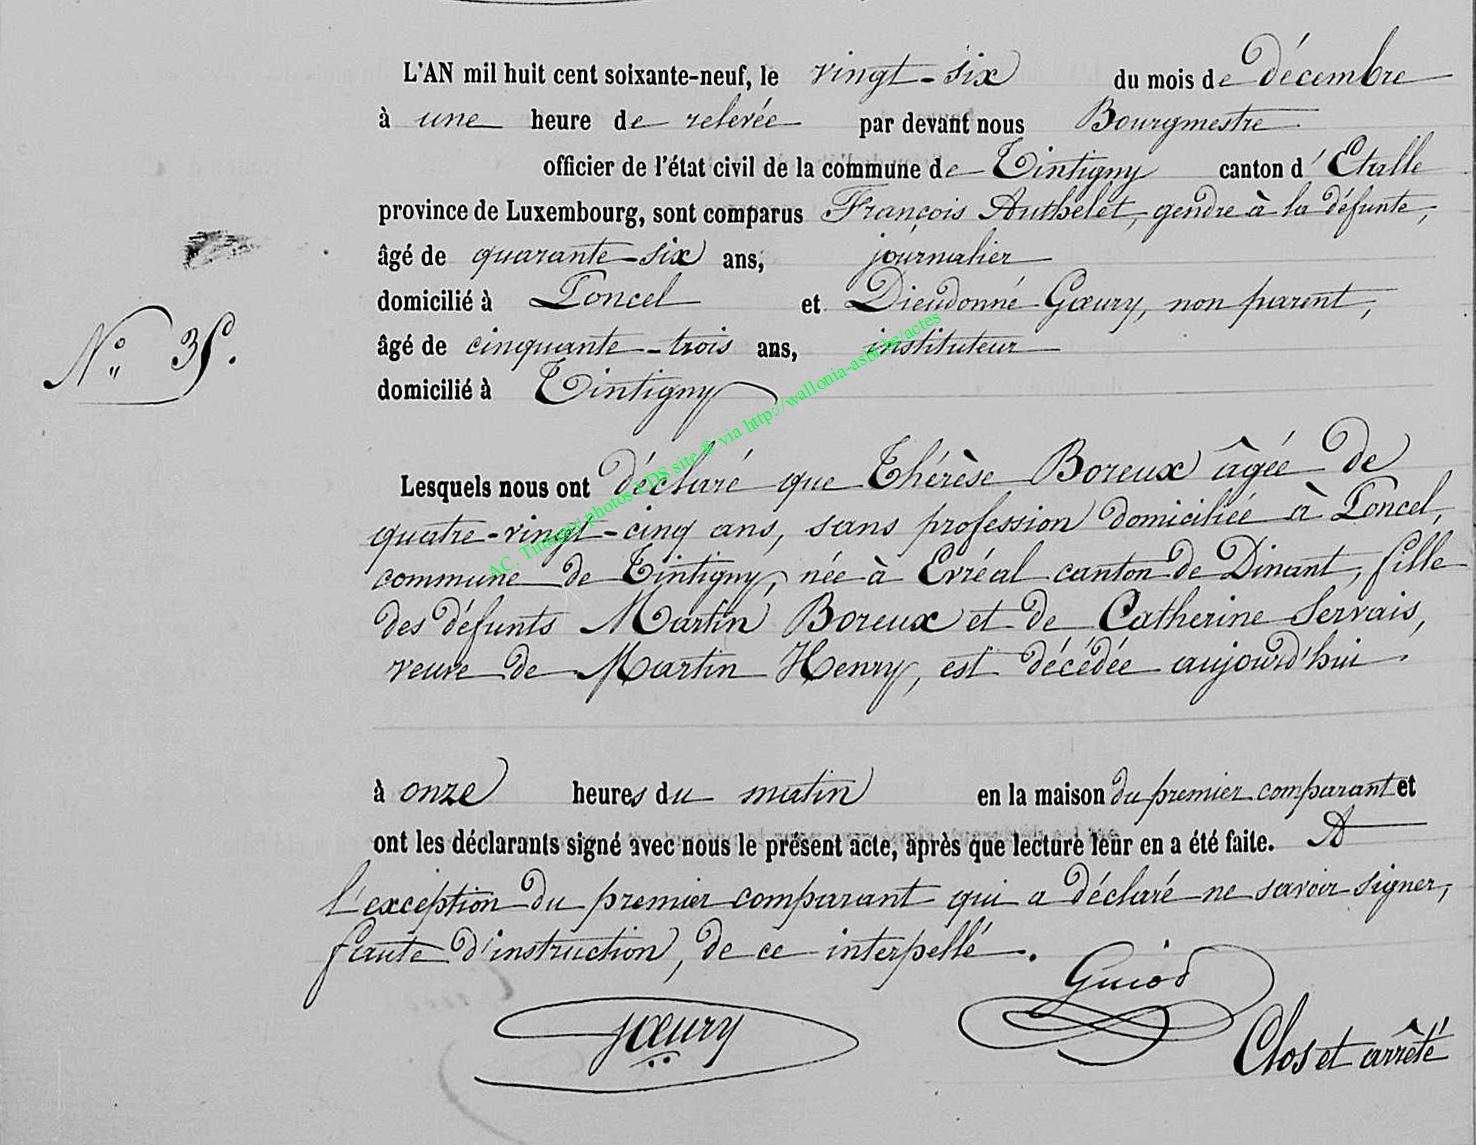 L'AN mil huit cent soixante-neuf, le vingt-six du mois de Décembre
à une heure de relevée par devant nous Bourgmestre
officier de l'état civil de la commune de Tintigny canton d'Etalle
province de Luxembourg, sont comparus François Authelet, gendre à la défunte,
âgé de quarante-six ans, journalier
domicilié à Poncel et Dieudonné Gœury, non parent,
N° 35.
âgé de cinquante-trois ans, instituteur
domicilié à Tintigny
AC. Tintigny photos LDS site ® via http://wallonia-asbl.be/actes
Lesquels nous ont déclaré que Thérèse Boreux âgée de
quatre-vingt-cinq ans, sans profession domiciliée à Poncel,
commune de Tintigny, née à Evréal canton de Dinant, fille
des défunts Martin Boreux et de Catherine Servais,
veuve de Martin Henry, est décédée aujourd'hui
à onze heures du matin en la maison du premier comparant et
ont les déclarants signé avec nous le présent acte, après que lecture leur en a été faite. A
l'exception du premier comparant qui a déclaré ne savoir signer,
faute d'instruction, de ce interpellé.
Guiod
Gœury
Clos et arrêté